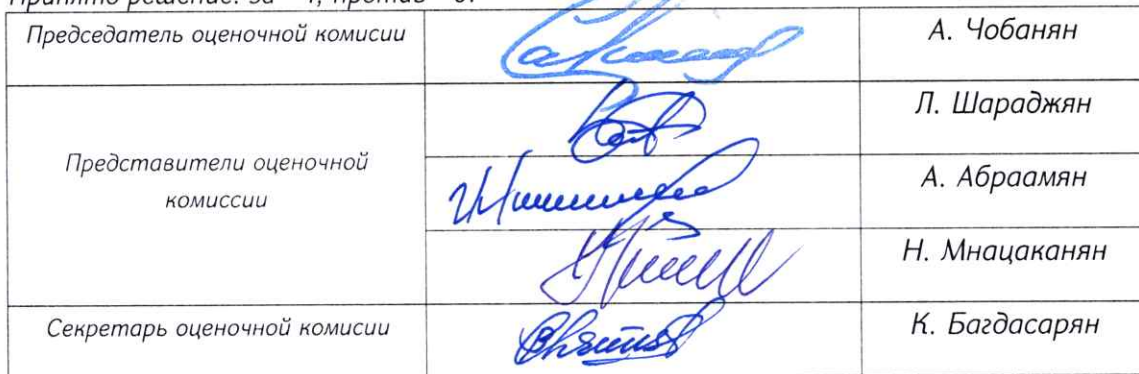 Принято решение: за – 4, против – 0.
Председатель оценочной комисии
А. Чобанян
Л. Шараджян
Представители оценочной
комиссии
А. Абраамян
Н. Мнацаканян
Секретарь оценочной комисии
К. Багдасарян